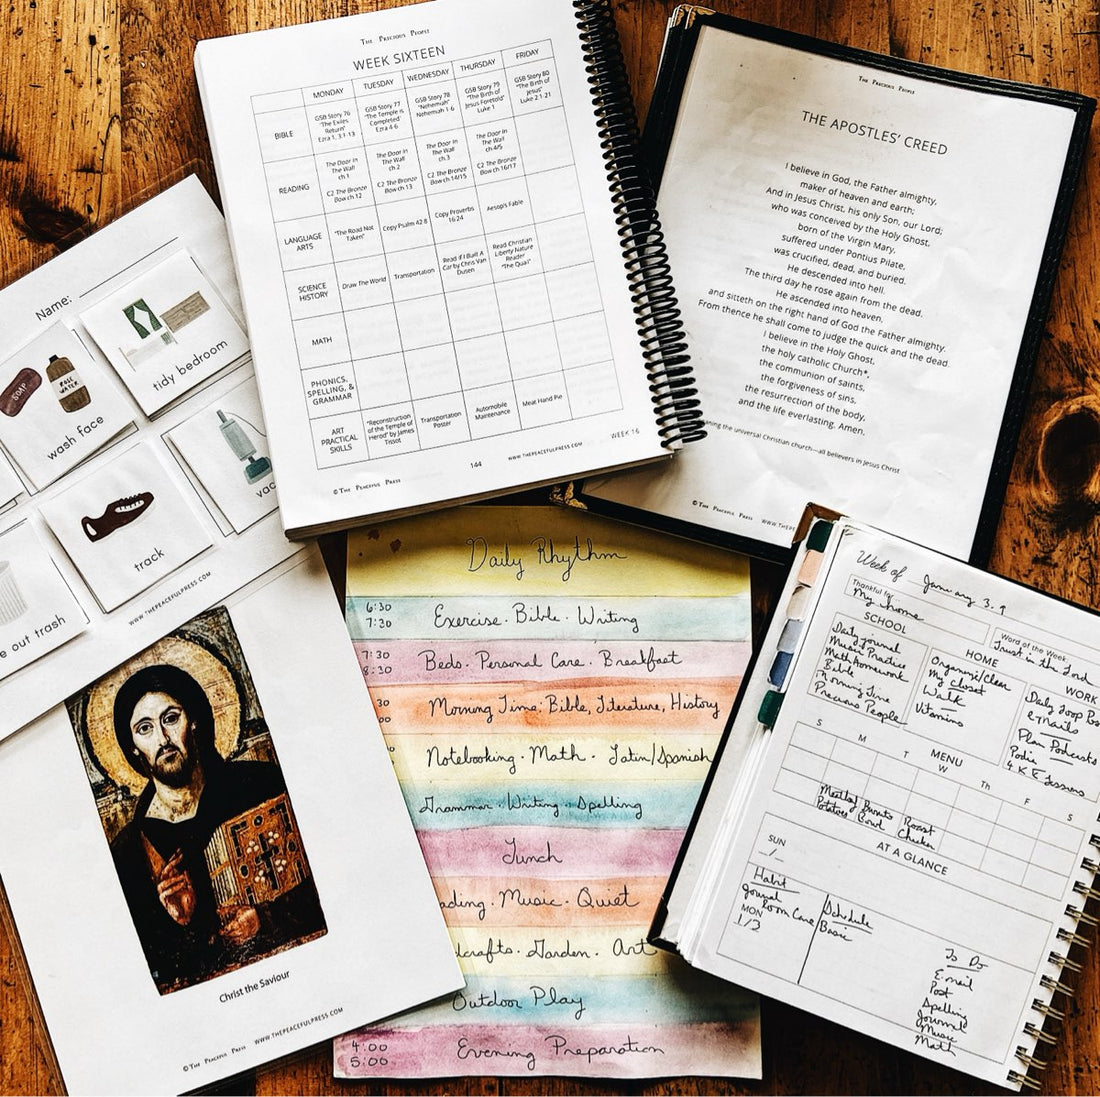 THE PRECIOUS PEOPLE
WEEK SIXTEEN
MONDAY TUESDAY WEDNESDAY THURSDAY FRIDAY
BIBLE
GSB Story 76
"The Exiles
Return"
Ezra 1, 3:1-13
GSB Story 77
"The Temple is
Completed"
Ezra 4-6
GSB Story 78
"Nehemiah"
Nehemiah 1-6
GSB Story 79
"The Birth of
Jesus Foretold"
Luke 1
GSB Story 80
"The Birth of
Jesus"
Luke 2:1-21
READING
The Door In
The Wall
ch.1
C2 The Bronze
Bow ch 12
The Door In
The Wall
ch.2
C2 The Bronze
Bow ch 13
The Door In
The Wall
ch.3
C2 The Bronze
Bow ch 14/15
The Door In
The Wall
ch.4/5
C2 The Bronze
Bow ch 16/17
LANGUAGE
ARTS
"The Road Not
Taken"
Copy Psalm 42:8
Copy Proverbs
16:24
Aesop's Fable
SCIENCE
HISTORY
Draw The World
Transportation
Read If I Built A
Car by Chris Van
Dusen
Read Christian
Liberty Nature
Reader
"The Quail"
MATH
PHONICS,
SPELLING, &
GRAMMAR
ART
PRACTICAL
SKILLS
"Reconstruction
of the Temple of
Herod" by James
Tissot
Transportation
Poster
Automobile
Maintenance
Meat Hand Pie
144
WWW.THEPEACEFULPRESS.COM
WEEK 16
© THE PEACEFUL PRESS
THE PRECIOUS PEOPLE
THE APOSTLES' CREED
I believe in God, the Father almighty,
maker of heaven and earth;
And in Jesus Christ, his only Son, our Lord;
who was conceived by the Holy Ghost,
born of the Virgin Mary,
suffered under Pontius Pilate,
was crucified, dead, and buried.
He descended into hell.
The third day he rose again from the dead.
He ascended into heaven,
and sitteth on the right hand of God the Father almighty.
From thence he shall come to judge the quick and the dead.
I believe in the Holy Ghost,
the holy catholic Church*,
the communion of saints,
the forgiveness of sins,
the resurrection of the body,
and the life everlasting. Amen.
the universal Christian church—all believers in Jesus Christ
© THE PEACEFUL PRESS WWW.THEPE
Name:
tidy bedroom
SOAP
ROSE
WATER
wash face
vac
track
e out trash
WWW.THEPEACEFULPRESS.COM
Christ the Saviour
© THE PEACEFUL PRESS WWW.THEPEACEFULPRESS.COM
Daily Rhythm
6:30
7:30
Exercise · Bible · Writing
7:30
8:30
Beds · Personal Care · Breakfast
30
00
Morning Time: Bible, Literature, History
Notebooking · Math · Latin/Spanish
Grammar · Writing · Spelling
Lunch
ading · Music · Quiet
dcrafts · Garden · Art
Outdoor Play
4:00
5:00
Evening Preparation
Week of January 3-9
Thankful for...
My home
Word of the Week
Trust in the Lord
SCHOOL
Daily journal
Music Practice
Math homework
Bible
Morning Time
Precious People
HOME
Organize/clean
my closet
Walk
Vitamins
WORK
Daily
emails
Plan Podcasts
S M T W Th F S
MENU
Meatloaf Burrito Roast
Potatoes Bowl Chicken
AT A GLANCE
SUN
_/_
Habit
Journal
Room Care
MON
1/3
Schedule
Basic
To Do
Email
Post
Spelling
Journal
Music
Math